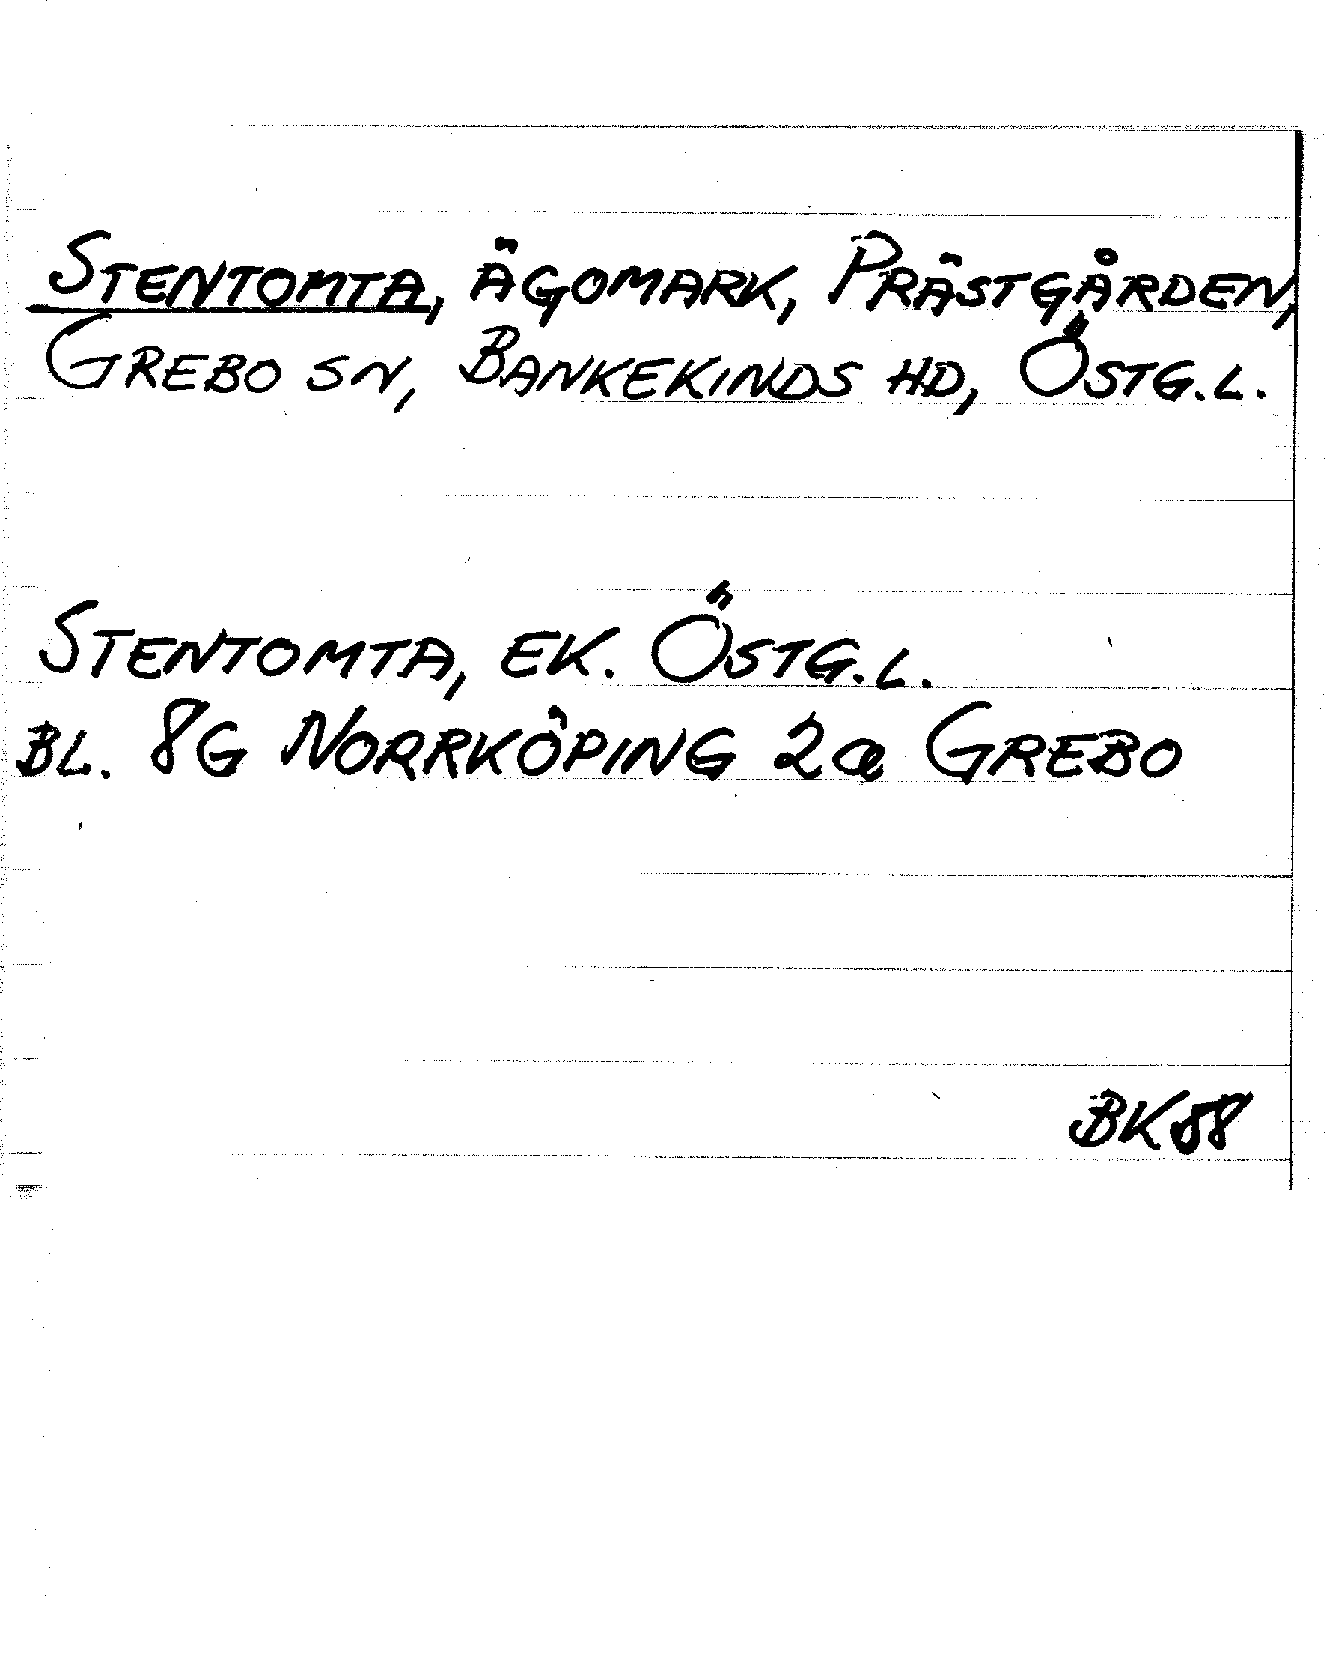 STENTOMTA, ÄGOMARK, PRÄSTGÅRDEN,
GREBO SN, BANKEKINDS HD, ÖSTG.L.
STENTOMTA, EK. ÖSTG.L.
BL. 8G NORRKÖPING 2a GREBO
BK88